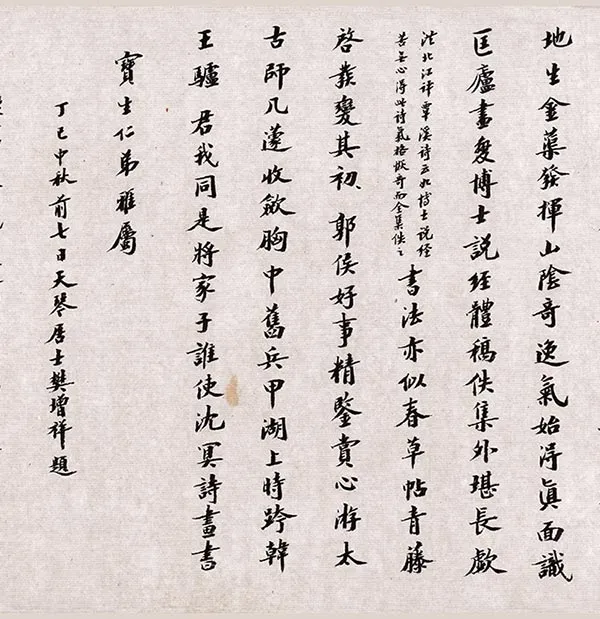 地生金蕖發揮山陰奇逸氣始得眞面識
匡廬盡變博士説經體稿佚集外堪長歔
洪北江評覃溪詩云如博士説經
苦無心得此詩氣格恢奇而全集佚之
書法亦似春草帖青藤
啓發變其初郭侯好事精鑒賞心游太
古師几蘧收斂胸中舊兵甲湖上時跨韓
王驢君我同是將家子誰使沈冥詩畫書
寶生仁弟雅屬
丁巳中秋前七日天琴居士樊增祥題